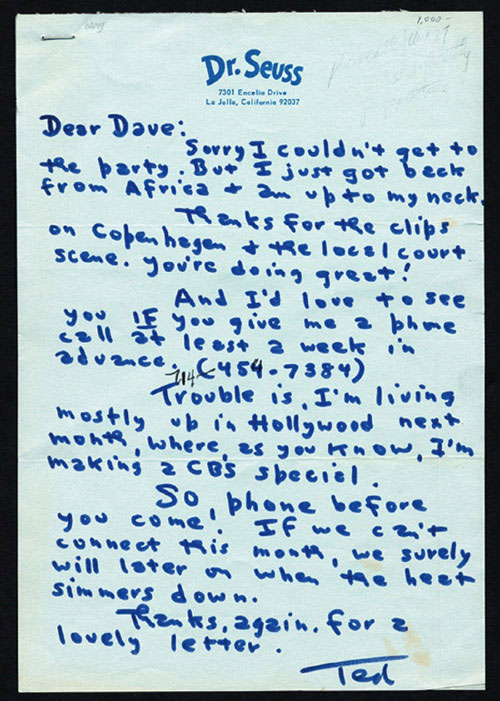 1,000-
Dr. Seuss
7301 Encelia Drive
La Jolla, California 92037
Dear Dave:
Sorry I couldn't get to
the party. But I just got back
from Africa + am up to my neck.
Thanks for the clips
on Copenhagen + the local court
scene. You're doing great!
And I'd love to see
you IF you give me a phone
call at least a week in
advance. (454-7384)
714-
Trouble is, I'm living
mostly up in Hollywood next
month, where, as you know, I'm
making a CBS special.
So, phone before
you come. If we can't
connect this month, we surely
will later on when the heat
simmers down.
Thanks, again, for a
lovely letter.
Ted